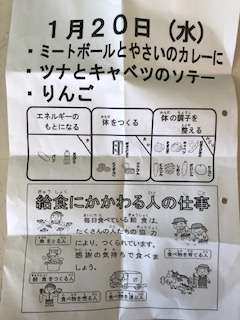 1月20日（水）
・ミートボールとやさいのカレーに
・ツナとキャベツのソテー
・りんご
エネルギーの
もとになる
体をつくる
体の調子を
整える
給食にかかわる人の仕事
毎日食べている給食は、
たくさんの人たちの協力
により、つくられています。
感謝の気持ちで食べま
しょう。
魚をとる人
給食を作る人
食べ物を運ぶ人
食べ物を育てる人